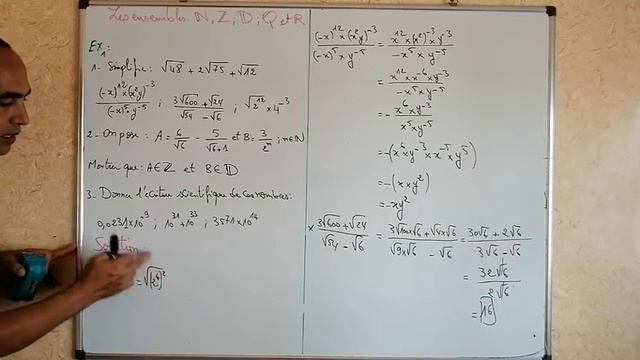 Les ensembles: N, Z, D, Q et R
Ex1:
1- Simplifie: √48 + 2√75 + √12
((-x)^12 × (x²y)^-3) / ((-x)^5 × y^-5) ; (3√600 + √24) / (√54 - √6) ; √(2^12) × 4^-3
2- On pose: A = 6/√6 - 5/(√6+1) et B = 3/2^n ; n∈N
Montrer que: A∈Z et B∈D
3- Donner l'écriture scientifique de ces nombres:
0,0231×10^-9 ; 10^31 + 10^33 ; 3571×10^14
Solution:
= √(2^6)²
((-x)^12 × (x²y)^-3) / ((-x)^5 × y^-5) = (x^12 × (x²)^-3 × y^-3) / (-x^5 × y^-5)
= (x^12 × x^-6 × y^-3) / (-x^5 × y^-5)
= - (x^6 × y^-3) / (x^5 y^-5)
= -(x^6 × y^-3 × x^-5 × y^5)
= -(x × y²)
= -xy²
× (3√600 + √24) / (√54 - √6) = (3√100×√6 + √4×√6) / (√9×√6 - √6) = (30√6 + 2√6) / (3√6 - √6)
= 32√6 / 2√6
= 16